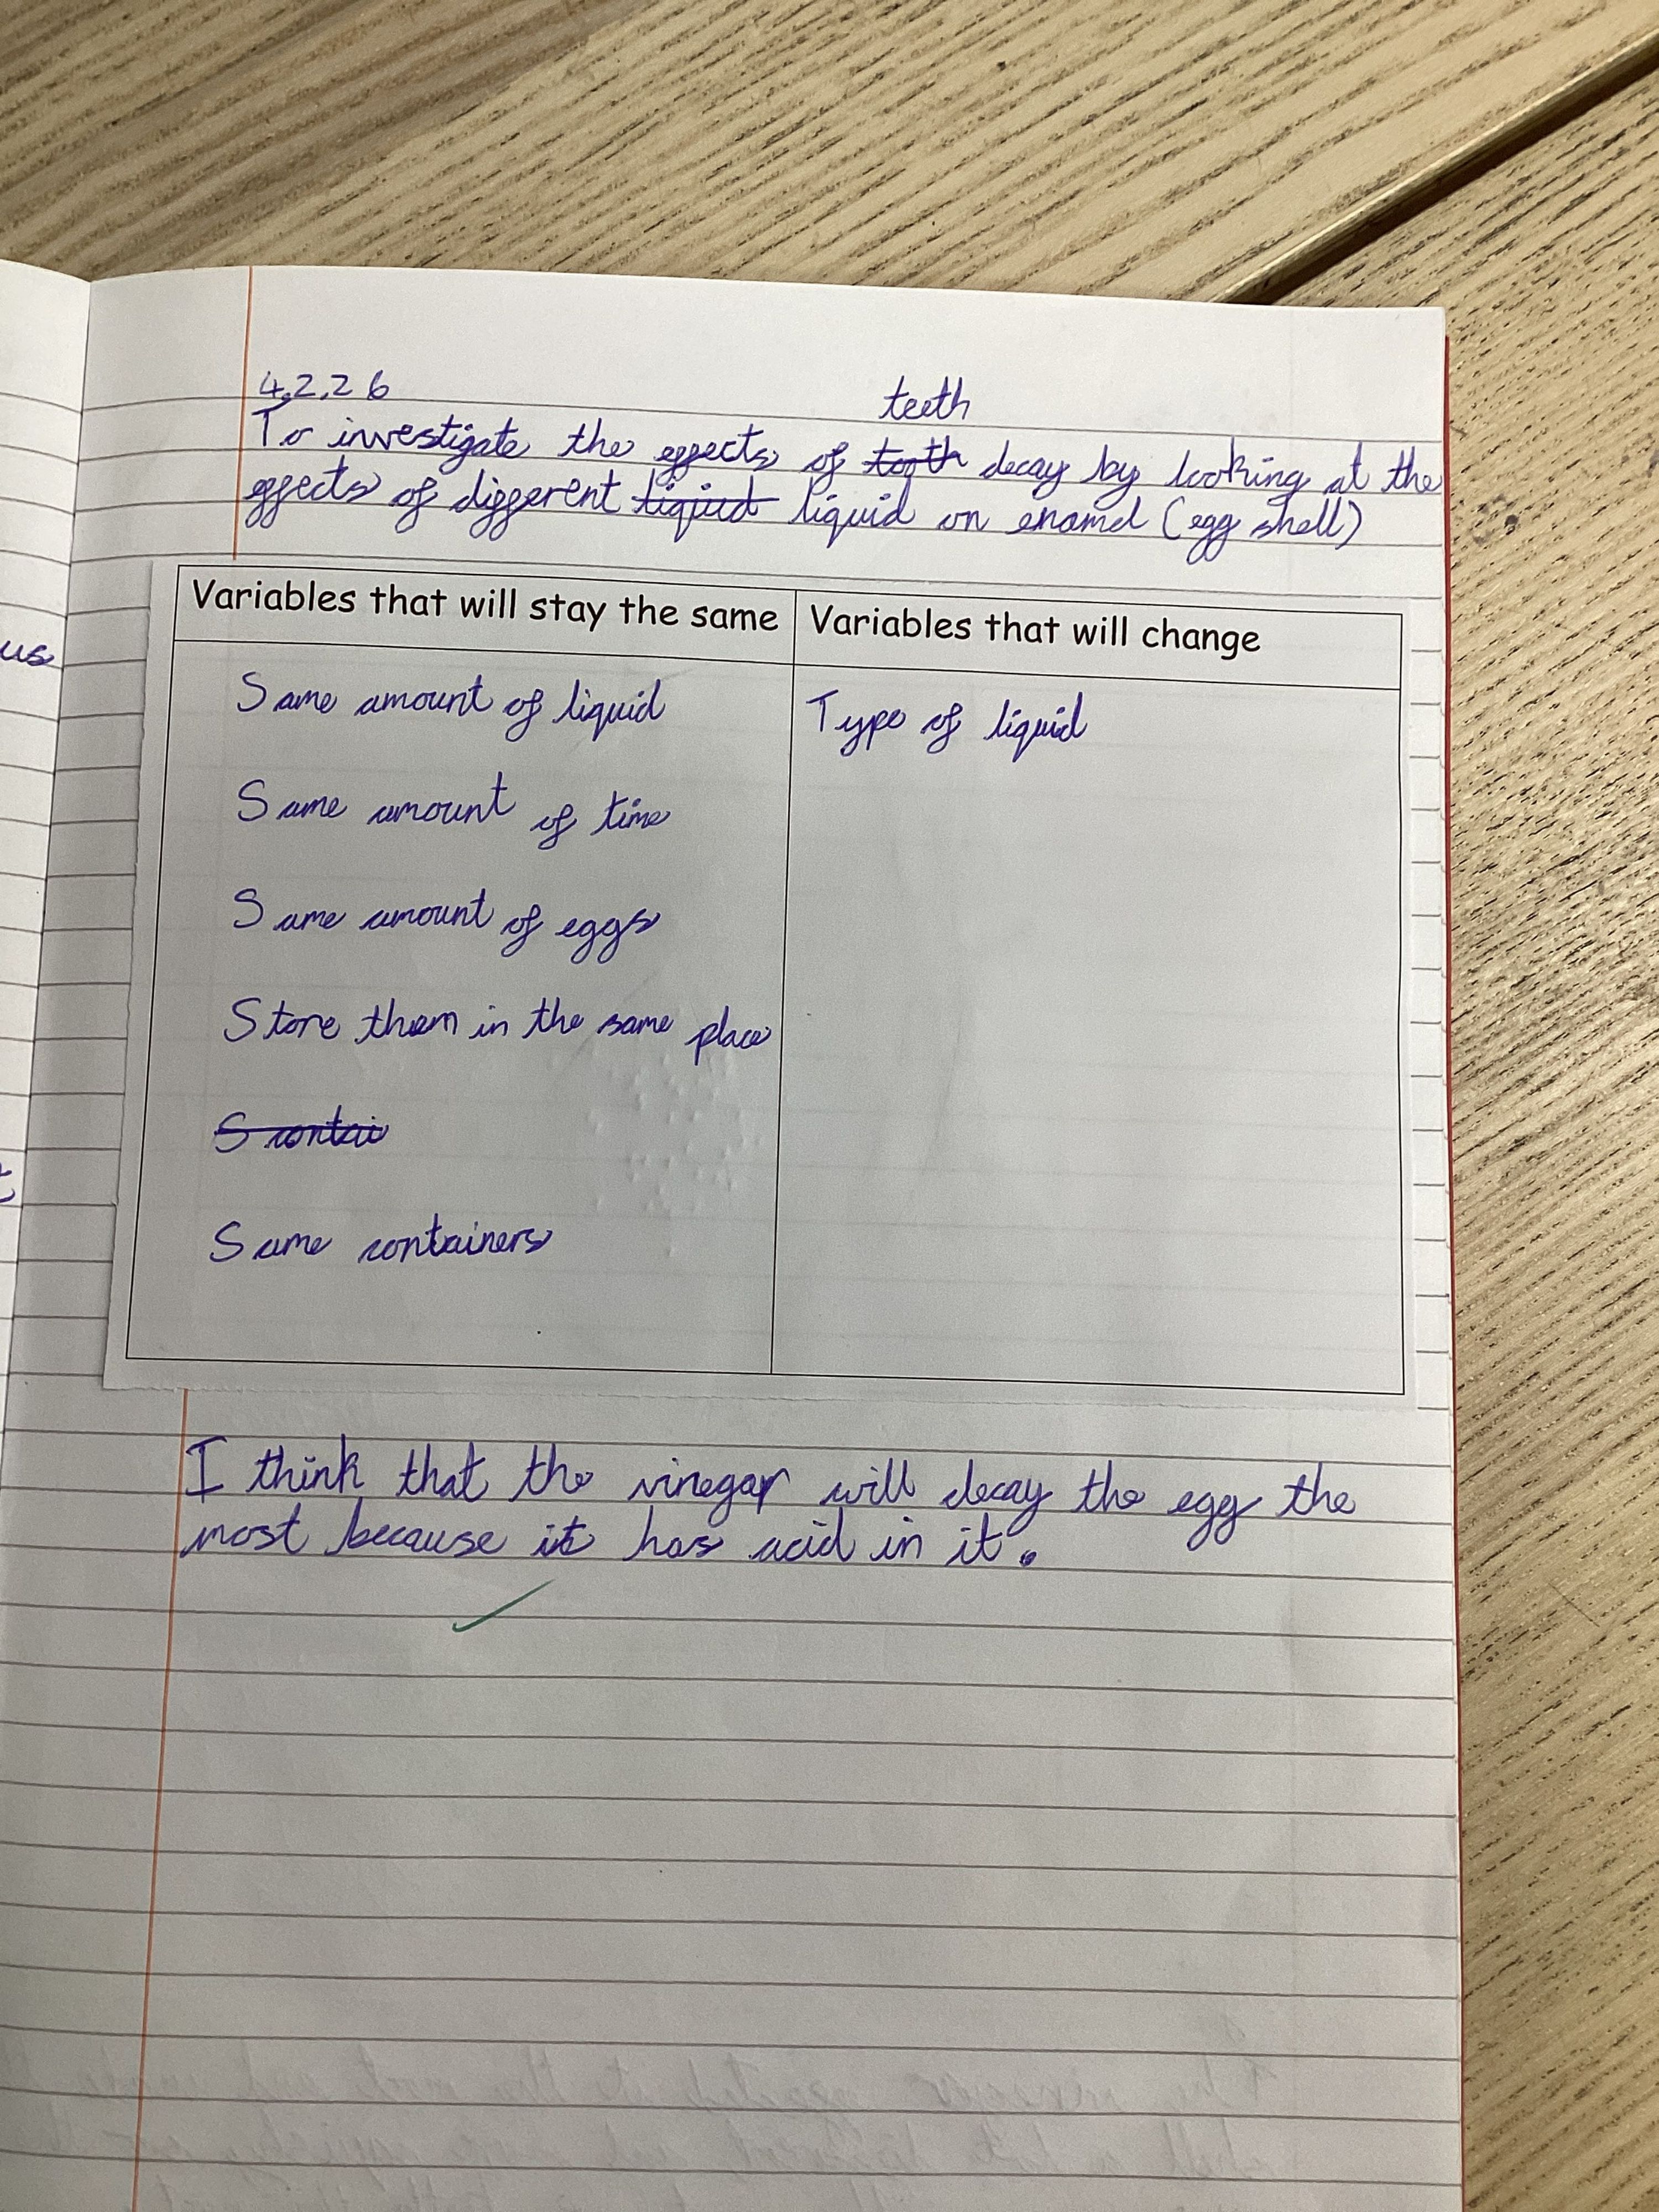 4.2.26
teeth
To investigate the effects of tooth decay by looking at the
effects of different liquid liquid on enamel (egg shell)
Variables that will stay the same Variables that will change
Same amount of liquid Type of liquid
Same amount of time
Same amount of eggs
Store them in the same place
S contai
Same containers
I think that the vinegar will decay the egg the
most because it has acid in it.
us